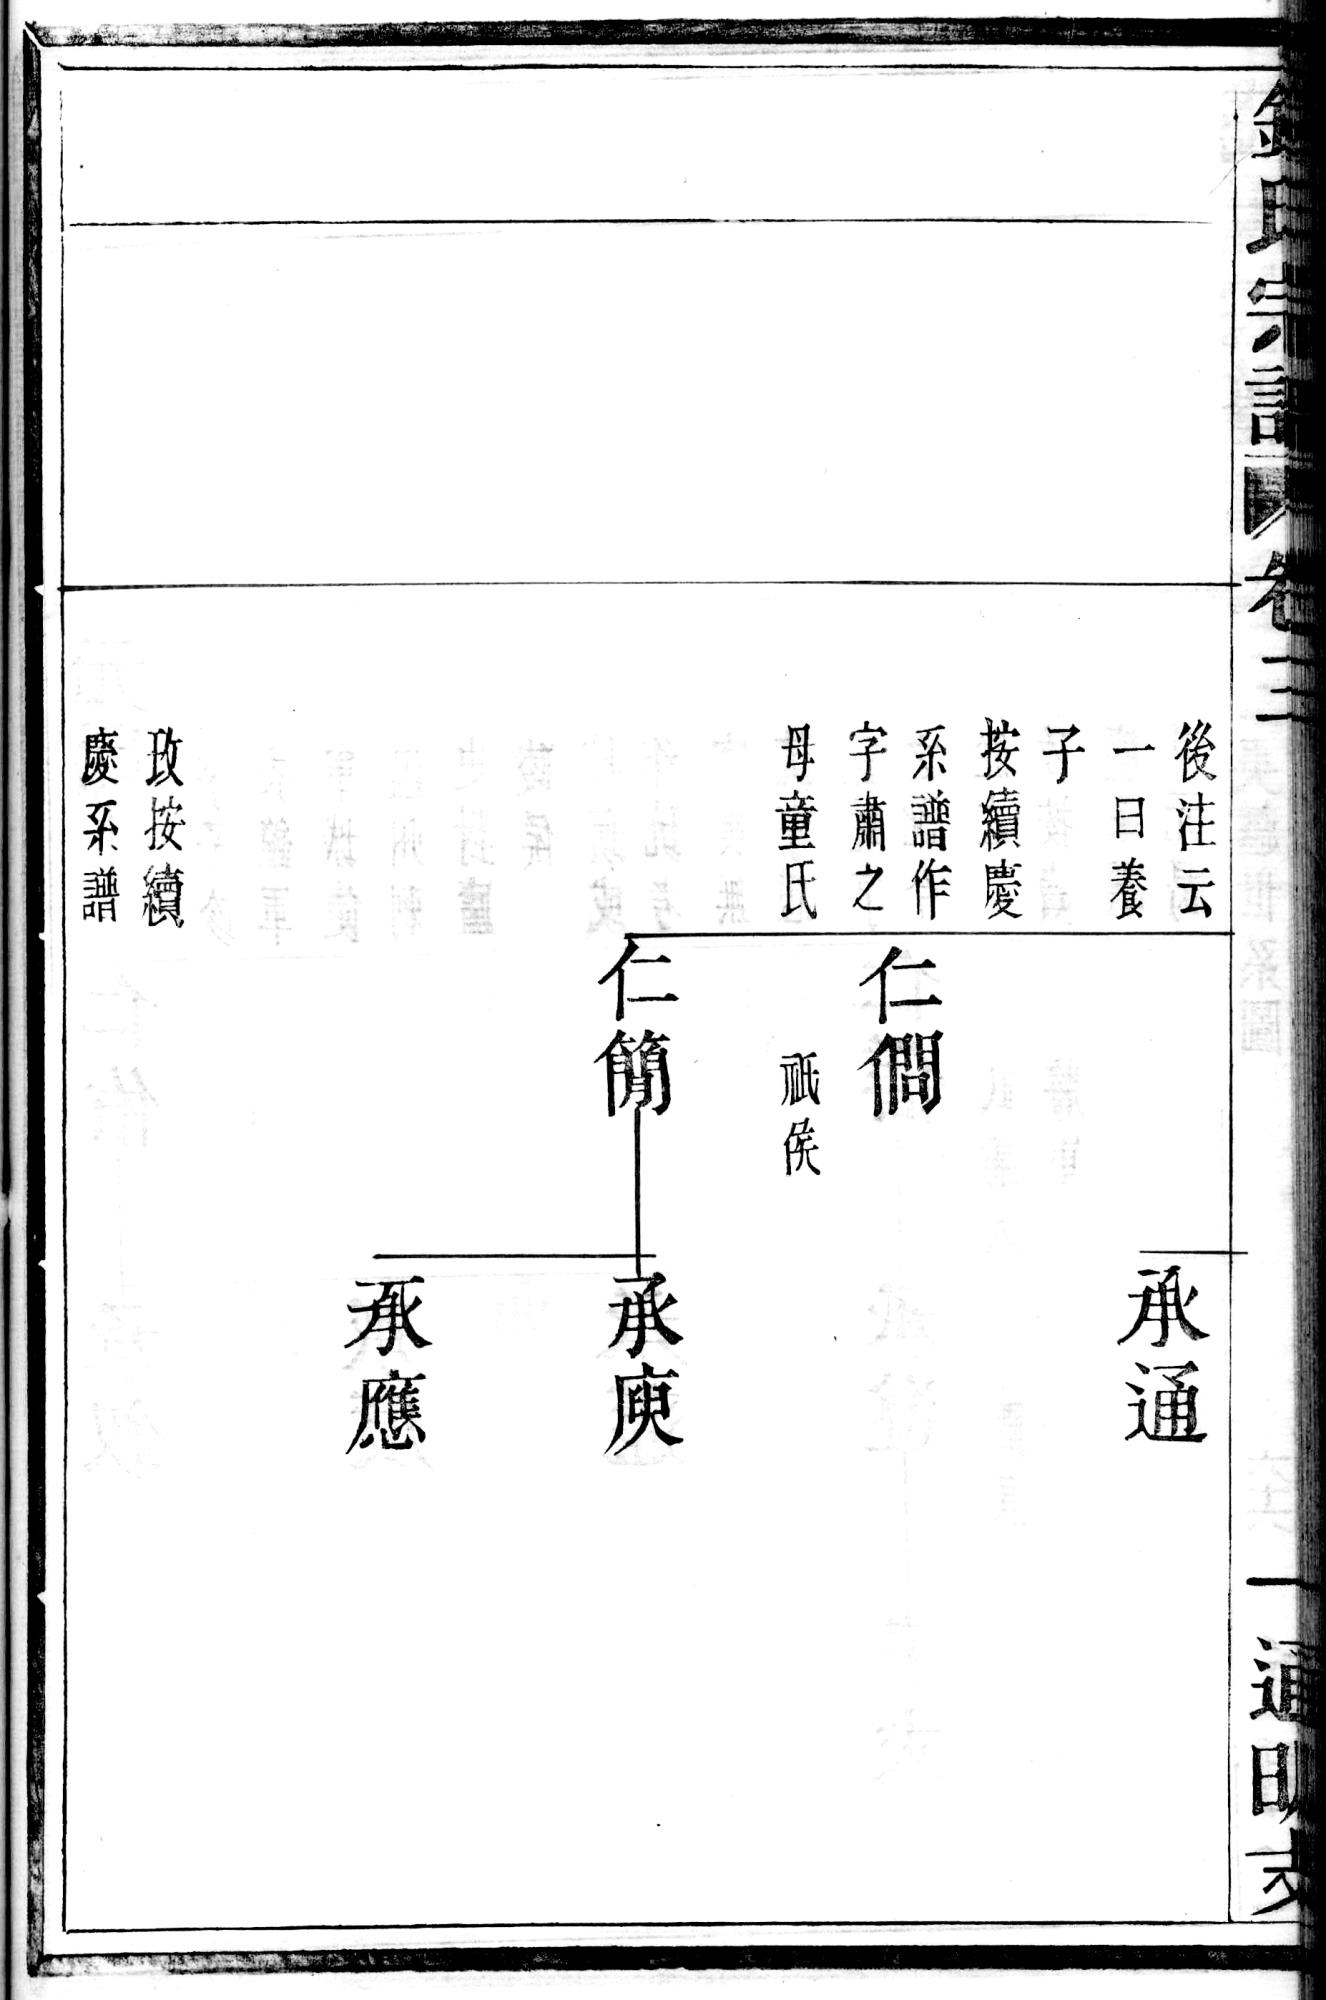 錢氏宗譜 卷三
一 通明支
後注云
一曰養
子
按續慶
系譜作
字肅之
母童氏
攷按續
慶系譜
仁僩
祇侯
仁簡
承通
承庾
承應